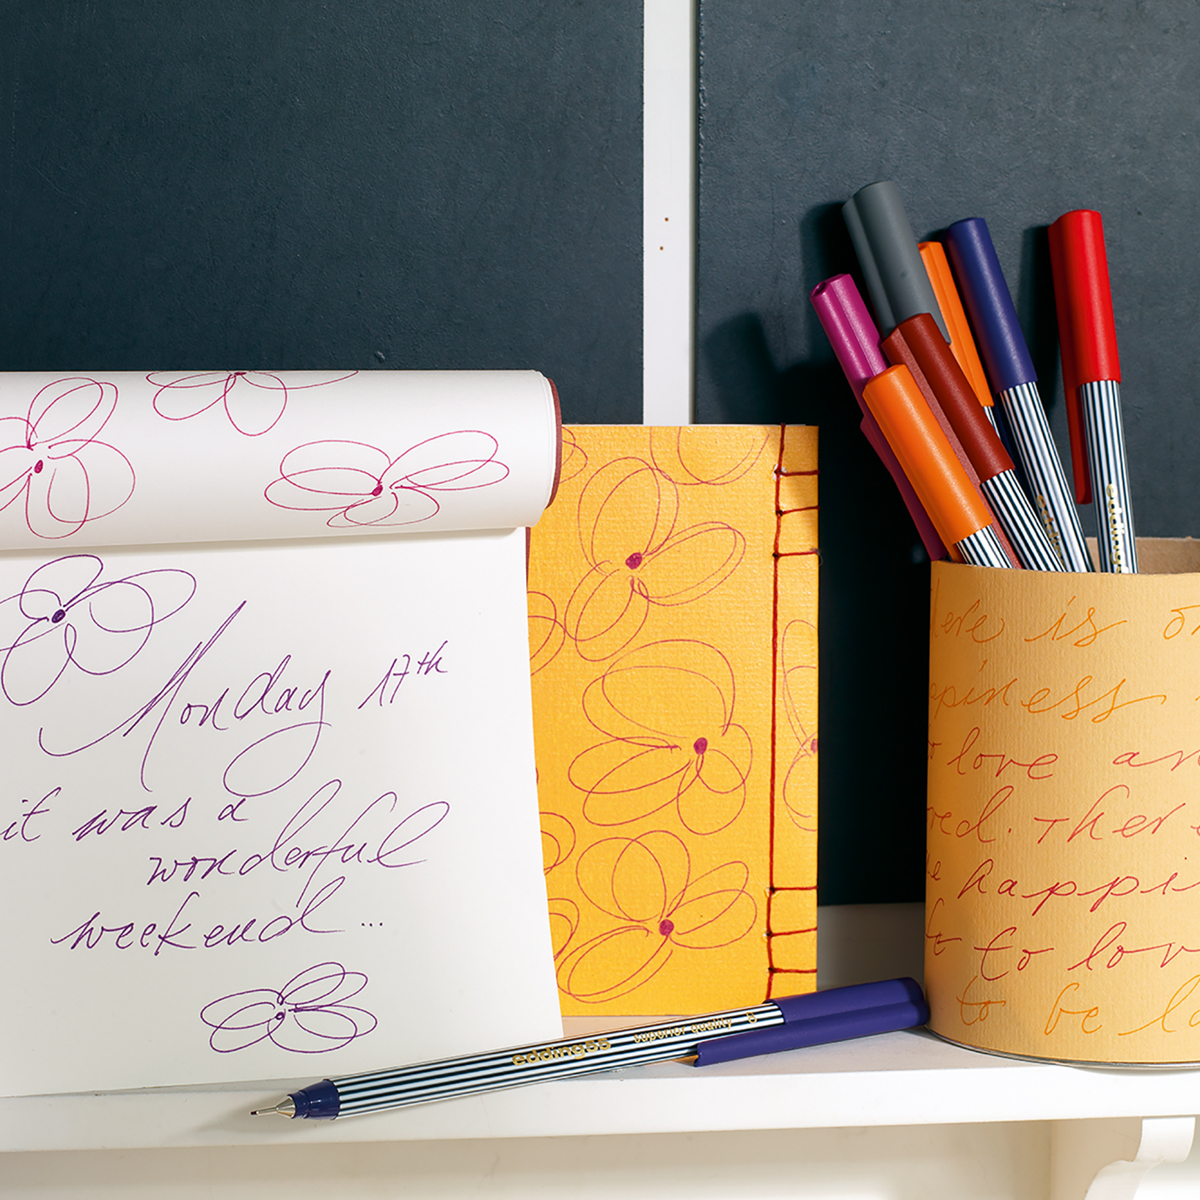 Monday 17th
it was a
wonderful
weekend...
edding 55 superior quality
is
love
Ther
happi
to lov
to be